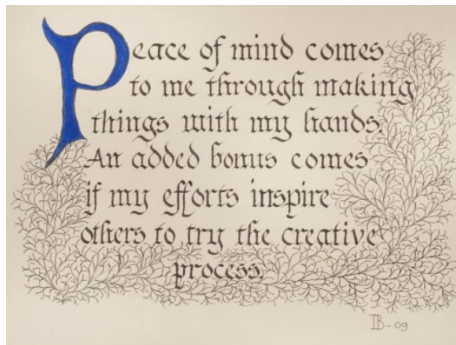 Peace of mind comes
to me through making
things with my hands.
An added bonus comes
if my efforts inspire
others to try the creative
process.
IB-09